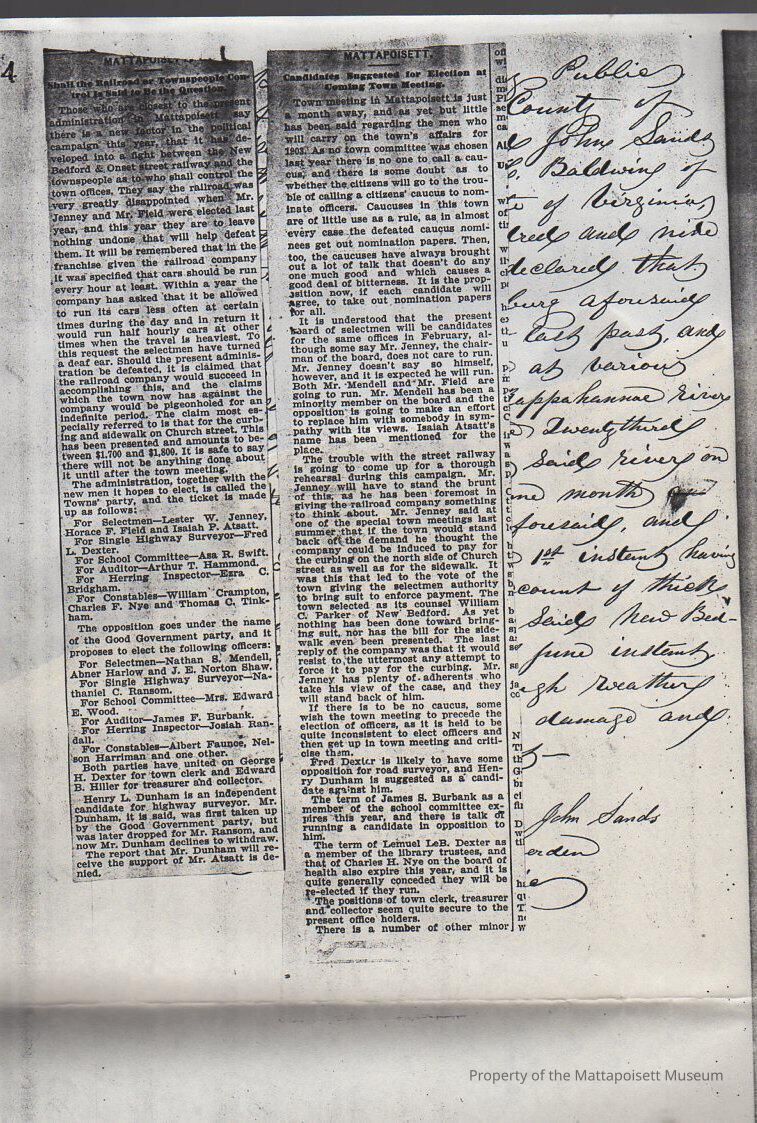 4
MATTAPOISETT
Shall the Railroad or Townspeople Con-
trol Is said to Be the Question.
Those who are closest to the present
administration in Mattapoisett say
there is a new factor in the political
campaign this year, that it has de-
veloped into a fight between the New
Bedford & Onset street railway and the
townspeople as to who shall control the
town offices. They say the railroad was
very greatly disappointed when Mr.
Jenney and Mr. Field were elected last
year, and this year they are to leave
nothing undone that will help defeat
them. It will be remembered that in the
franchise given the railroad company
it was specified that cars should be run
every hour at least. Within a year the
company has asked that it be allowed
to run its cars less often at certain
times during the day and in return it
would run half hourly cars at other
times when the travel is heaviest. To
this request the selectmen have turned
a deaf ear. Should the present adminis-
tration be defeated, it is claimed that
the railroad company would succeed in
accomplishing this, and the claims
which the town now has against the
company would be pigeonholed for an
indefinite period. The claim most es-
pecially referred to is that for the curb-
ing and sidewalk on Church street. This
has been presented and amounts to be-
tween $1,700 and $1,800. It is safe to say
there will not be anything done about
it until after the town meeting.
The administration, together with the
new men it hopes to elect, is called the
Towns' party, and the ticket is made
up as follows:
For Selectmen—Lester W. Jenney,
Horace F. Field and Isaiah P. Atsatt.
For Single Highway Surveyor—Fred
L. Dexter.
For School Committee—Asa R. Swift.
For Auditor—Arthur T. Hammond.
For Herring Inspector—Ezra C.
Bridgham.
For Constables—William Crampton,
Charles F. Nye and Thomas C. Tink-
ham.
The opposition goes under the name
of the Good Government party, and it
proposes to elect the following officers:
For Selectmen—Nathan S. Mendell,
Abner Harlow and J. E. Norton Shaw.
For Single Highway Surveyor—Na-
thaniel C. Ransom.
For School Committee—Mrs. Edward
E. Wood.
For Auditor—James F. Burbank.
For Herring Inspector—Josiah Ran-
dall.
For Constables—Albert Faunce, Nel-
son Harriman and one other.
Both parties have united on George
H. Dexter for town clerk and Edward
B. Hiller for treasurer and collector.
Henry L. Dunham is an independent
candidate for highway surveyor. Mr.
Dunham, it is said, was first taken up
by the Good Government party, but
was later dropped for Mr. Ransom, and
now Mr. Dunham declines to withdraw.
The report that Mr. Dunham will re-
ceive the support of Mr. Atsatt is de-
nied.
MATTAPOISETT.
Candidates Suggested for Election at
Coming Town Meeting.
Town meeting in Mattapoisett is just
a month away, and as yet but little
has been said regarding the men who
will carry on the town's affairs for
1903. As no town committee was chosen
last year there is no one to call a cau-
cus, and there is some doubt as to
whether the citizens will go to the trou-
ble of calling a citizens' caucus to nom-
inate officers. Caucuses in this town
are of little use as a rule, as in almost
every case the defeated caucus nomi-
nees get out nomination papers. Then,
too, the caucuses have always brought
out a lot of talk that doesn't do any
one much good and which causes a
good deal of bitterness. It is the prop-
osition now, if each candidate will
agree, to take out nomination papers
for all.
It is understood that the present
board of selectmen will be candidates
for the same offices in February, al-
though some say Mr. Jenney, the chair-
man of the board, does not care to run.
Mr. Jenney doesn't say so himself,
however, and it is expected he will run.
Both Mr. Mendell and Mr. Field are
going to run. Mr. Mendell has been a
minority member on the board and the
opposition is going to make an effort
to replace him with somebody in sym-
pathy with its views. Isaiah Atsatt's
name has been mentioned for the
place.
The trouble with the street railway
is going to come up for a thorough
rehearsal during this campaign. Mr.
Jenney will have to stand the brunt
of this, as he has been foremost in
giving the railroad company something
to think about. Mr. Jenney said at
one of the special town meetings last
summer that if the town would stand
back of the demand he thought the
company could be induced to pay for
the curbing on the north side of Church
street as well as for the sidewalk. It
was this that led to the vote of the
town giving the selectmen authority
to bring suit to enforce payment. The
town selected as its counsel William
C. Parker of New Bedford. As yet
nothing has been done toward bring-
ing suit, nor has the bill for the side-
walk even been presented. The last
reply of the company was that it would
resist to the uttermost any attempt to
force it to pay for the curbing. Mr.
Jenney has plenty of adherents who
take his view of the case, and they
will stand back of him.
If there is to be no caucus, some
wish the town meeting to precede the
election of officers, as it is held to be
quite inconsistent to elect officers and
then get up in town meeting and criti-
cise them.
Fred Dexter is likely to have some
opposition for road surveyor, and Hen-
ry Dunham is suggested as a candi-
date against him.
The term of James S. Burbank as a
member of the school committee ex-
pires this year, and there is talk of
running a candidate in opposition to
him.
The term of Lemuel LeB. Dexter as
a member of the library trustees, and
that of Charles H. Nye on the board of
health also expire this year, and it is
quite generally conceded they will be
re-elected if they run.
The positions of town clerk, treasurer
and collector seem quite secure to the
present office holders.
There is a number of other minor
Public
County of
John Sands
Baldwin of
of Virginia,
dred and nine
declared that
burg aforesaid
last past, and
at various
appahannac river
Twenty third
said river on
one month
foresaid, and
1st instant having
count of thick
said New Bed-
June instant
ugh weather
damage and
John Sands
erden
Property of the Mattapoisett Museum